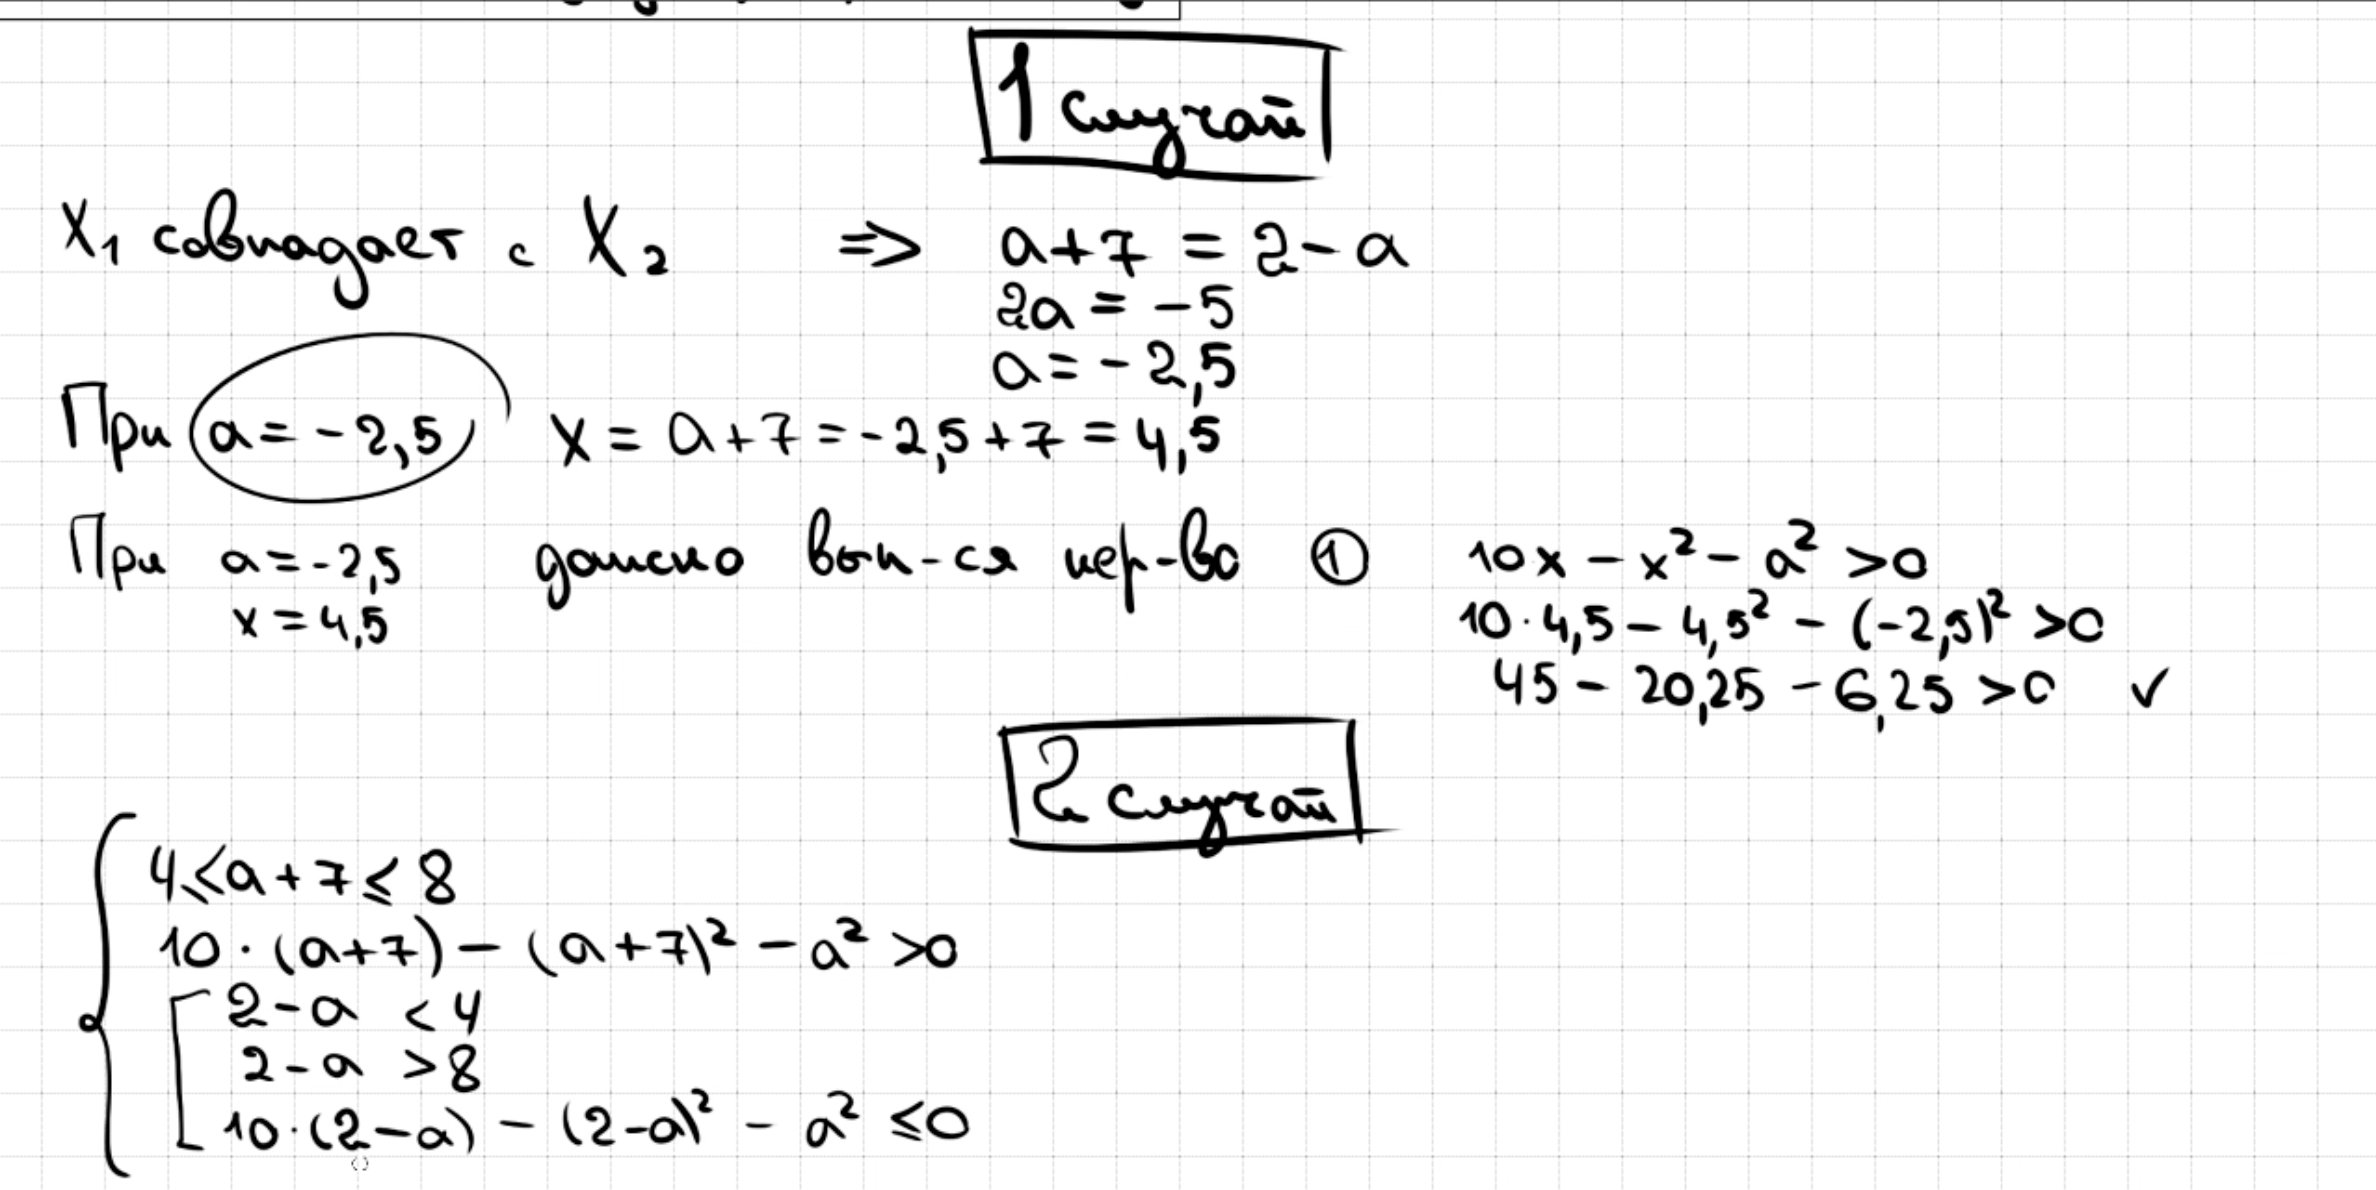 1 случай
x₁ совпадает с x₂ => a+7 = 2-a
2a = -5
a = -2,5
При a = -2,5 x = a+7 = -2,5+7 = 4,5
При a = -2,5 должно вып-ся нер-во ① 10x - x² - a² >0
x = 4,5 10·4,5 - 4,5² - (-2,5)² >0
45 - 20,25 - 6,25 >0 ✓
2 случай
4 ≤ a+7 ≤ 8
10·(a+7) - (a+7)² - a² >0
2-a < 4
2-a > 8
10·(2-a) - (2-a)² - a² ≤0